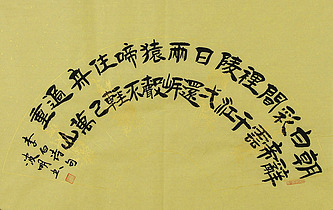 朝辭
白帝
彩雲
間千
裡江
陵弌
日還
兩岸
猿聲
啼不
住輕
舟已
過萬
重山
李白詩句